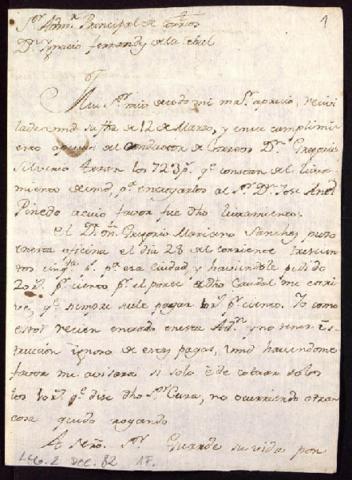 1
Sor. Admor. Principal de Correos
Dn. Ygnacio Fernandez de la
Mui Sor. mio de todo mi maior aprecio, recivi
la de vmd su fha de 12 de Marzo, y en su cumplimi
ento del conductor de Correos Dn. Gregorio
Silverio los 723 ps. qe. constan del libra
miento de vmd, pa. entregarlos al Sor. Dn. Jose Anto.
Pinedo a cuio favor fue dho libramiento.
El Dor. Dn. Gregorio Mariano Sanches puso
en esta oficina el dia 23 del corriente trescien
tos ps. pa. esa ciudad, y haviendole pedido
20 rs. pr. ciento pr. el porte de dho Caudal me con
qe. siempre suele pagar 10 rs. pr. ciento. Yo como
estoi recien entrado en esta Adon. y no tener ins
truccion ignoro de estas pagas, vmd haciendome
favor me avisara si solo é de cobrar solos
los 10 rs. qe. dise dho Sor. Cura, no ocurriendo otra
cosa quedo rogando
A Ntro. Sor. Guarde su vida por
Leg. 2 Dec. 82 17.